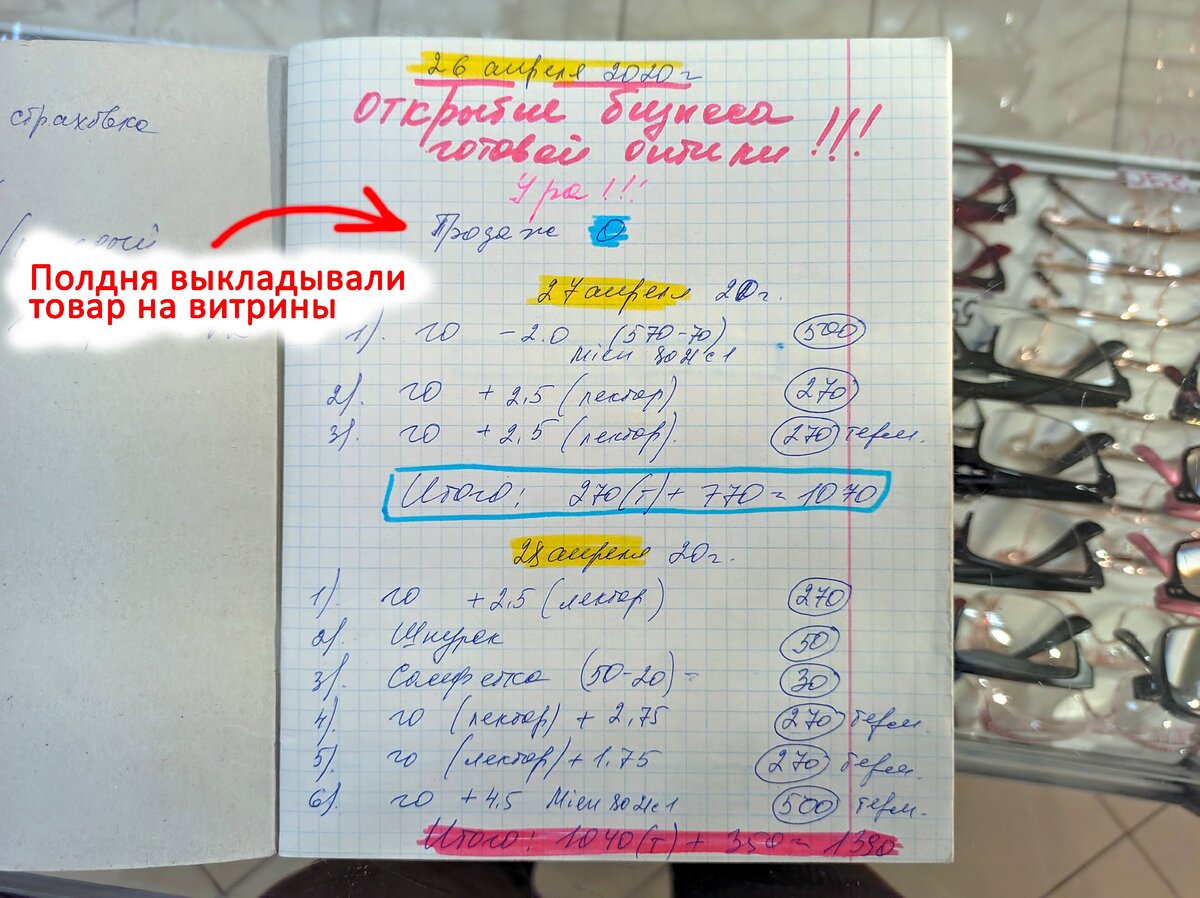 страховка
26 апреля 2020г
Открытие бизнеса
готовой оптики !!!
Ура!!!
Продаж 0
Полдня выкладывали
товар на витрины
27 апреля 20г.
1). ГО -2.0 (570-70) 500
Mien 8021c1
2). ГО +2,5 (лектор) 270
3). ГО +2,5 (лектор). 270 терм.
Итого: 270(т) + 770 = 1070
28 апреля 20г.
1). ГО +2,5 (лектор) 270
2). Шнурок 50
3). Салфетка (50-20) = 30
4). ГО (лектор) + 2,75 270 терм.
5). ГО (лектор) + 1.75 270 терм.
6). ГО +4,5 Mien 8021c1 500 терм.
Итого: 1040(т) + 350 = 1390